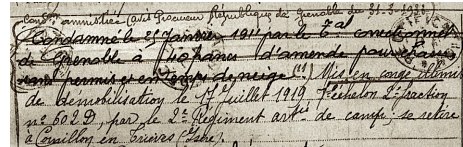 Cond. amnistiée (avis Procureur République de Grenoble du 31.3.1920
Condamné le 25 Janvier 1911 par le Tal correctionnel
de Grenoble à 50 francs d'amende pour chasse
sans permis et en temps de neige. Mis en congé illimité
de démobilisation le 17 Juillet 1919, échelon 2e fraction
n° 602 D, par le 2e Régiment artie de camp; se retire
à Cornillon en Trièves (Isère).